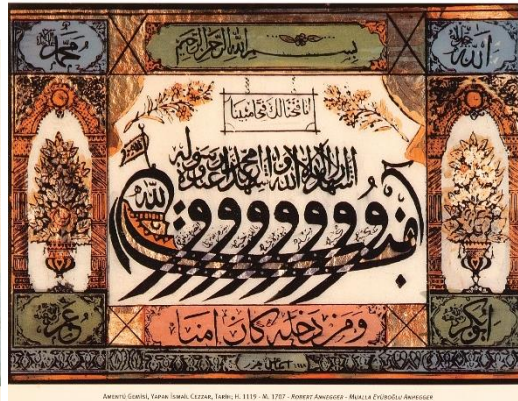 الله
بسم الله الرحمن الرحيم
محمد
انا فتحنا لك فتحا مبينا
اشهد ان لا اله الا الله و اشهد ان محمدا عبده و رسوله
الله
ابوبكر
ومن دخله كان امنا
عمر
AMENTÜ GEMİSİ, YAPAN İSMAİL CEZZAR, TARİH; H. 1119 - M. 1707 - ROBERT ANHEGGER - MUALLA EYÜBOĞLU ANHEGGER